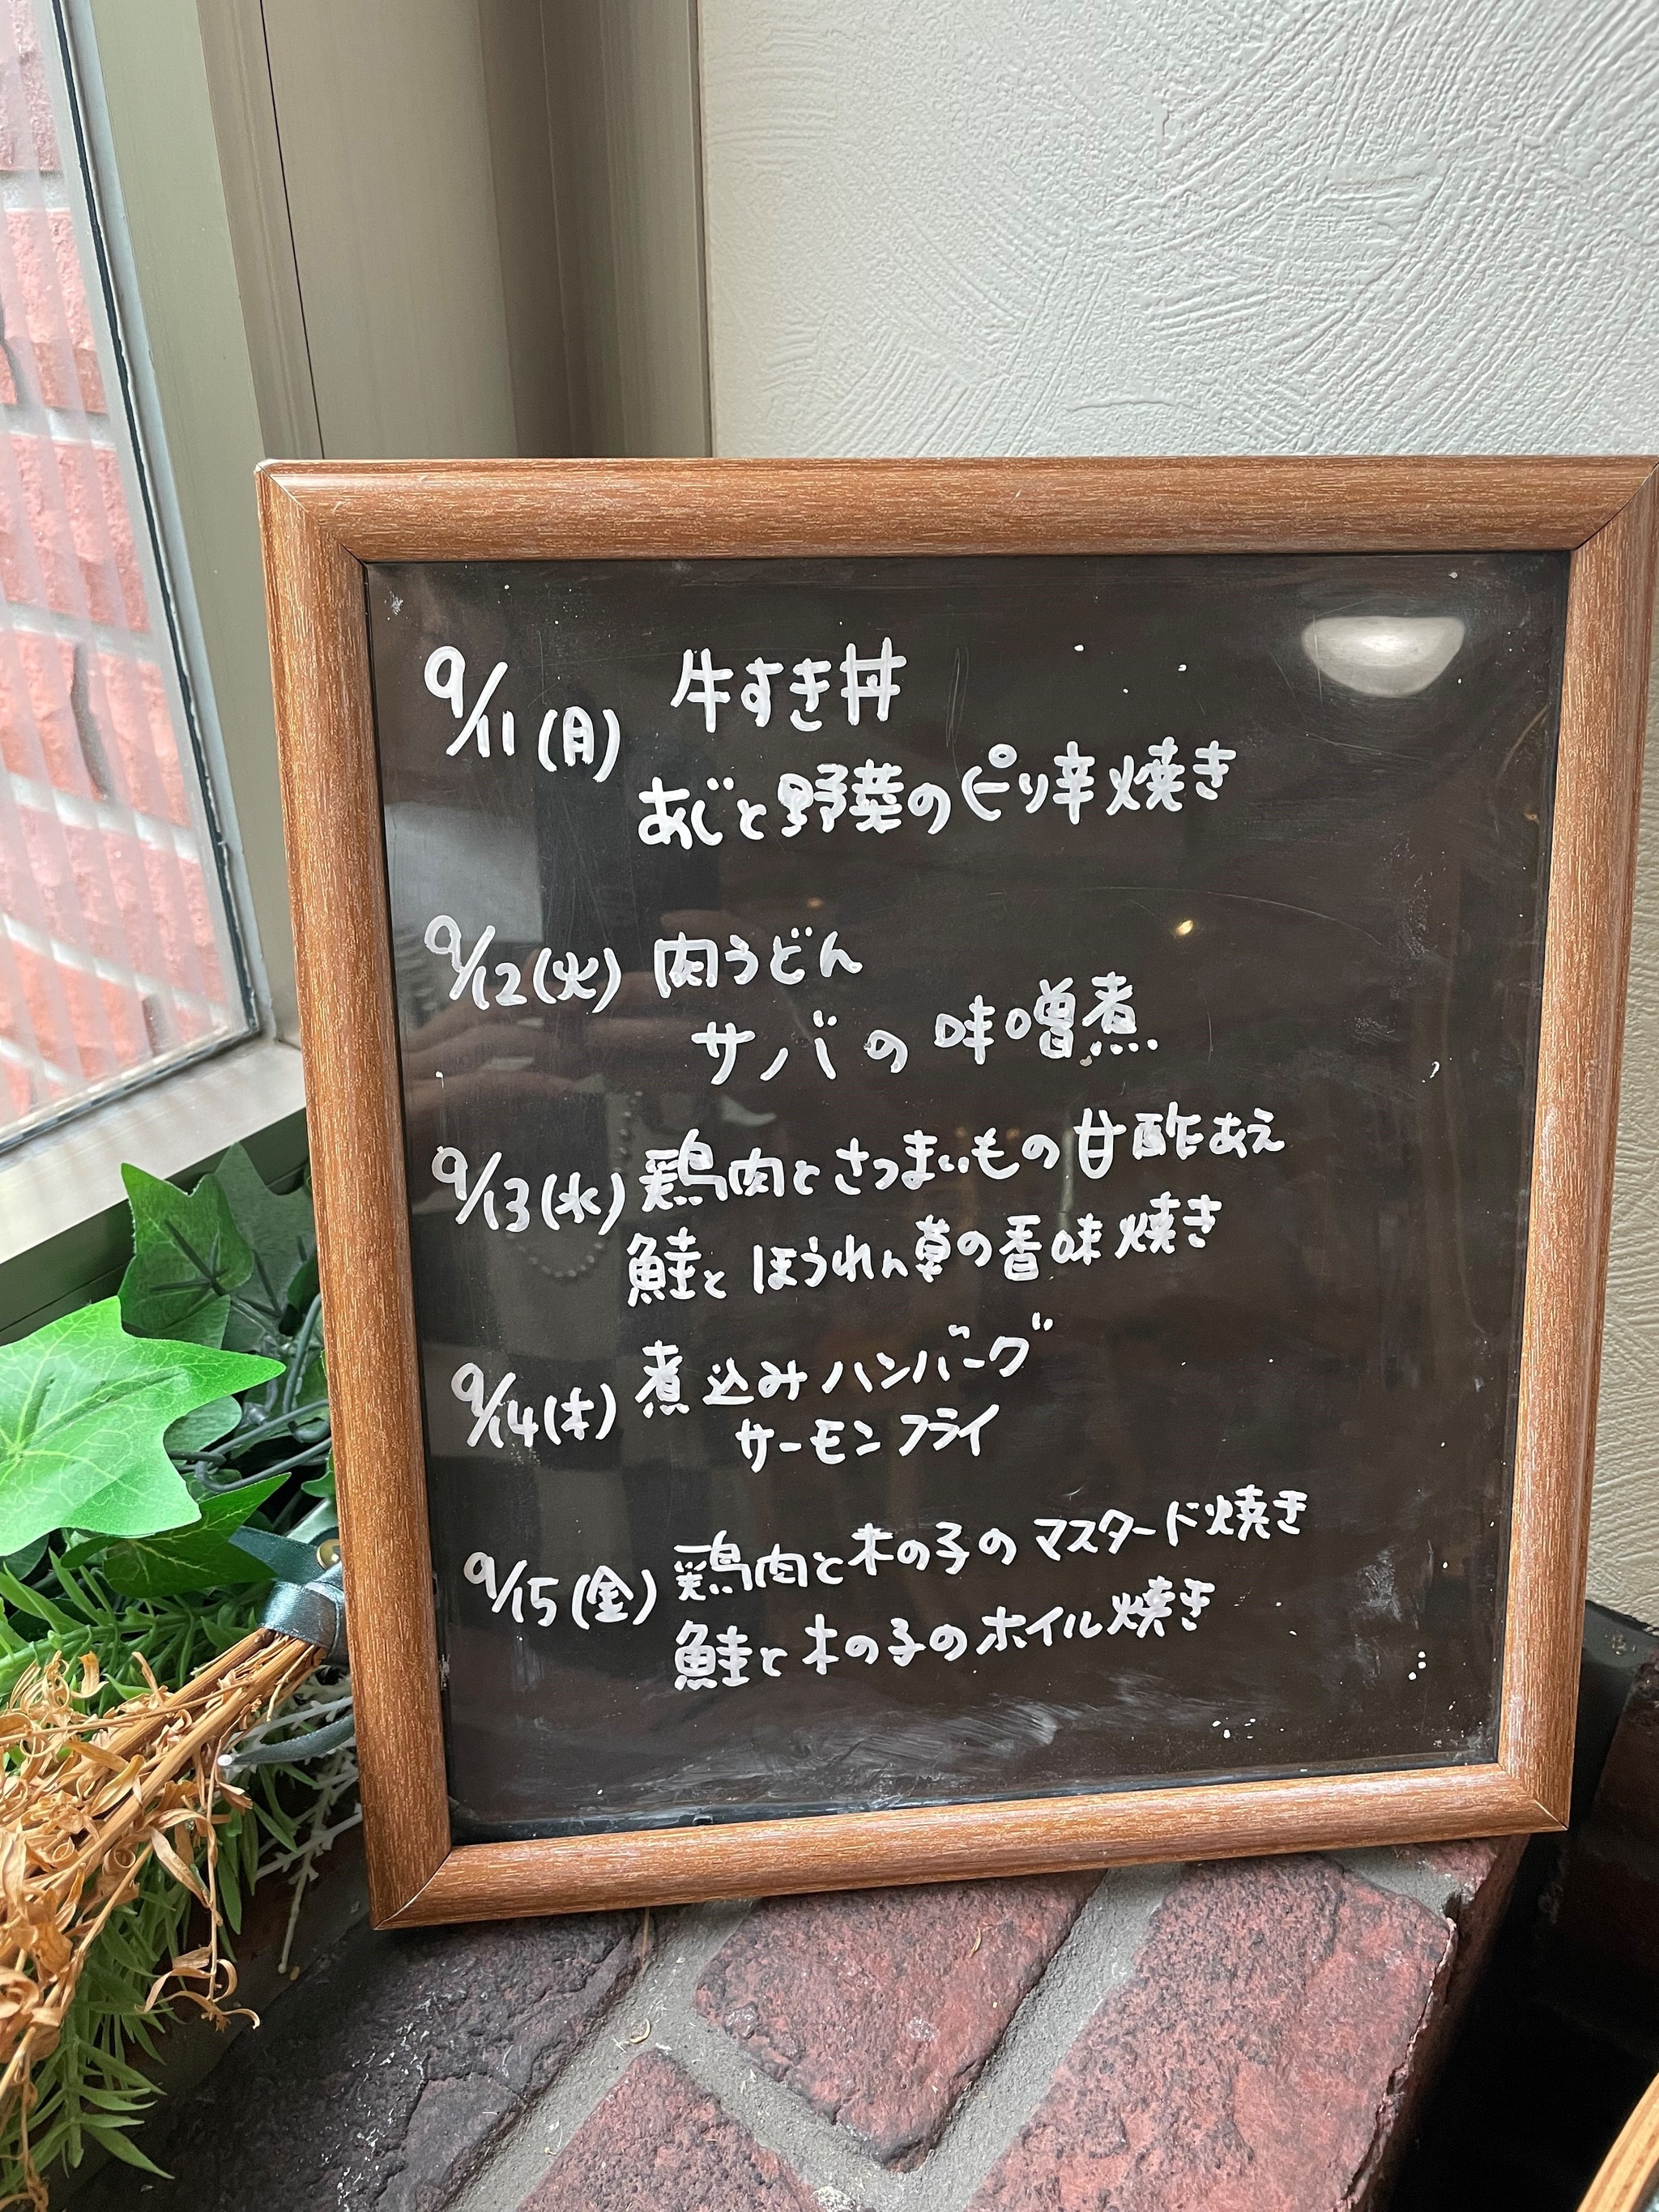 9/11(月) 牛すき丼
あじと野菜のピリ辛焼き
9/12(火) 肉うどん
サバの味噌煮
9/13(水) 鶏肉とさつまいもの甘酢あえ
鮭とほうれん草の香味焼き
9/14(木) 煮込みハンバーグ
サーモンフライ
9/15(金) 鶏肉と木の子のマスタード焼き
鮭と木の子のホイル焼き